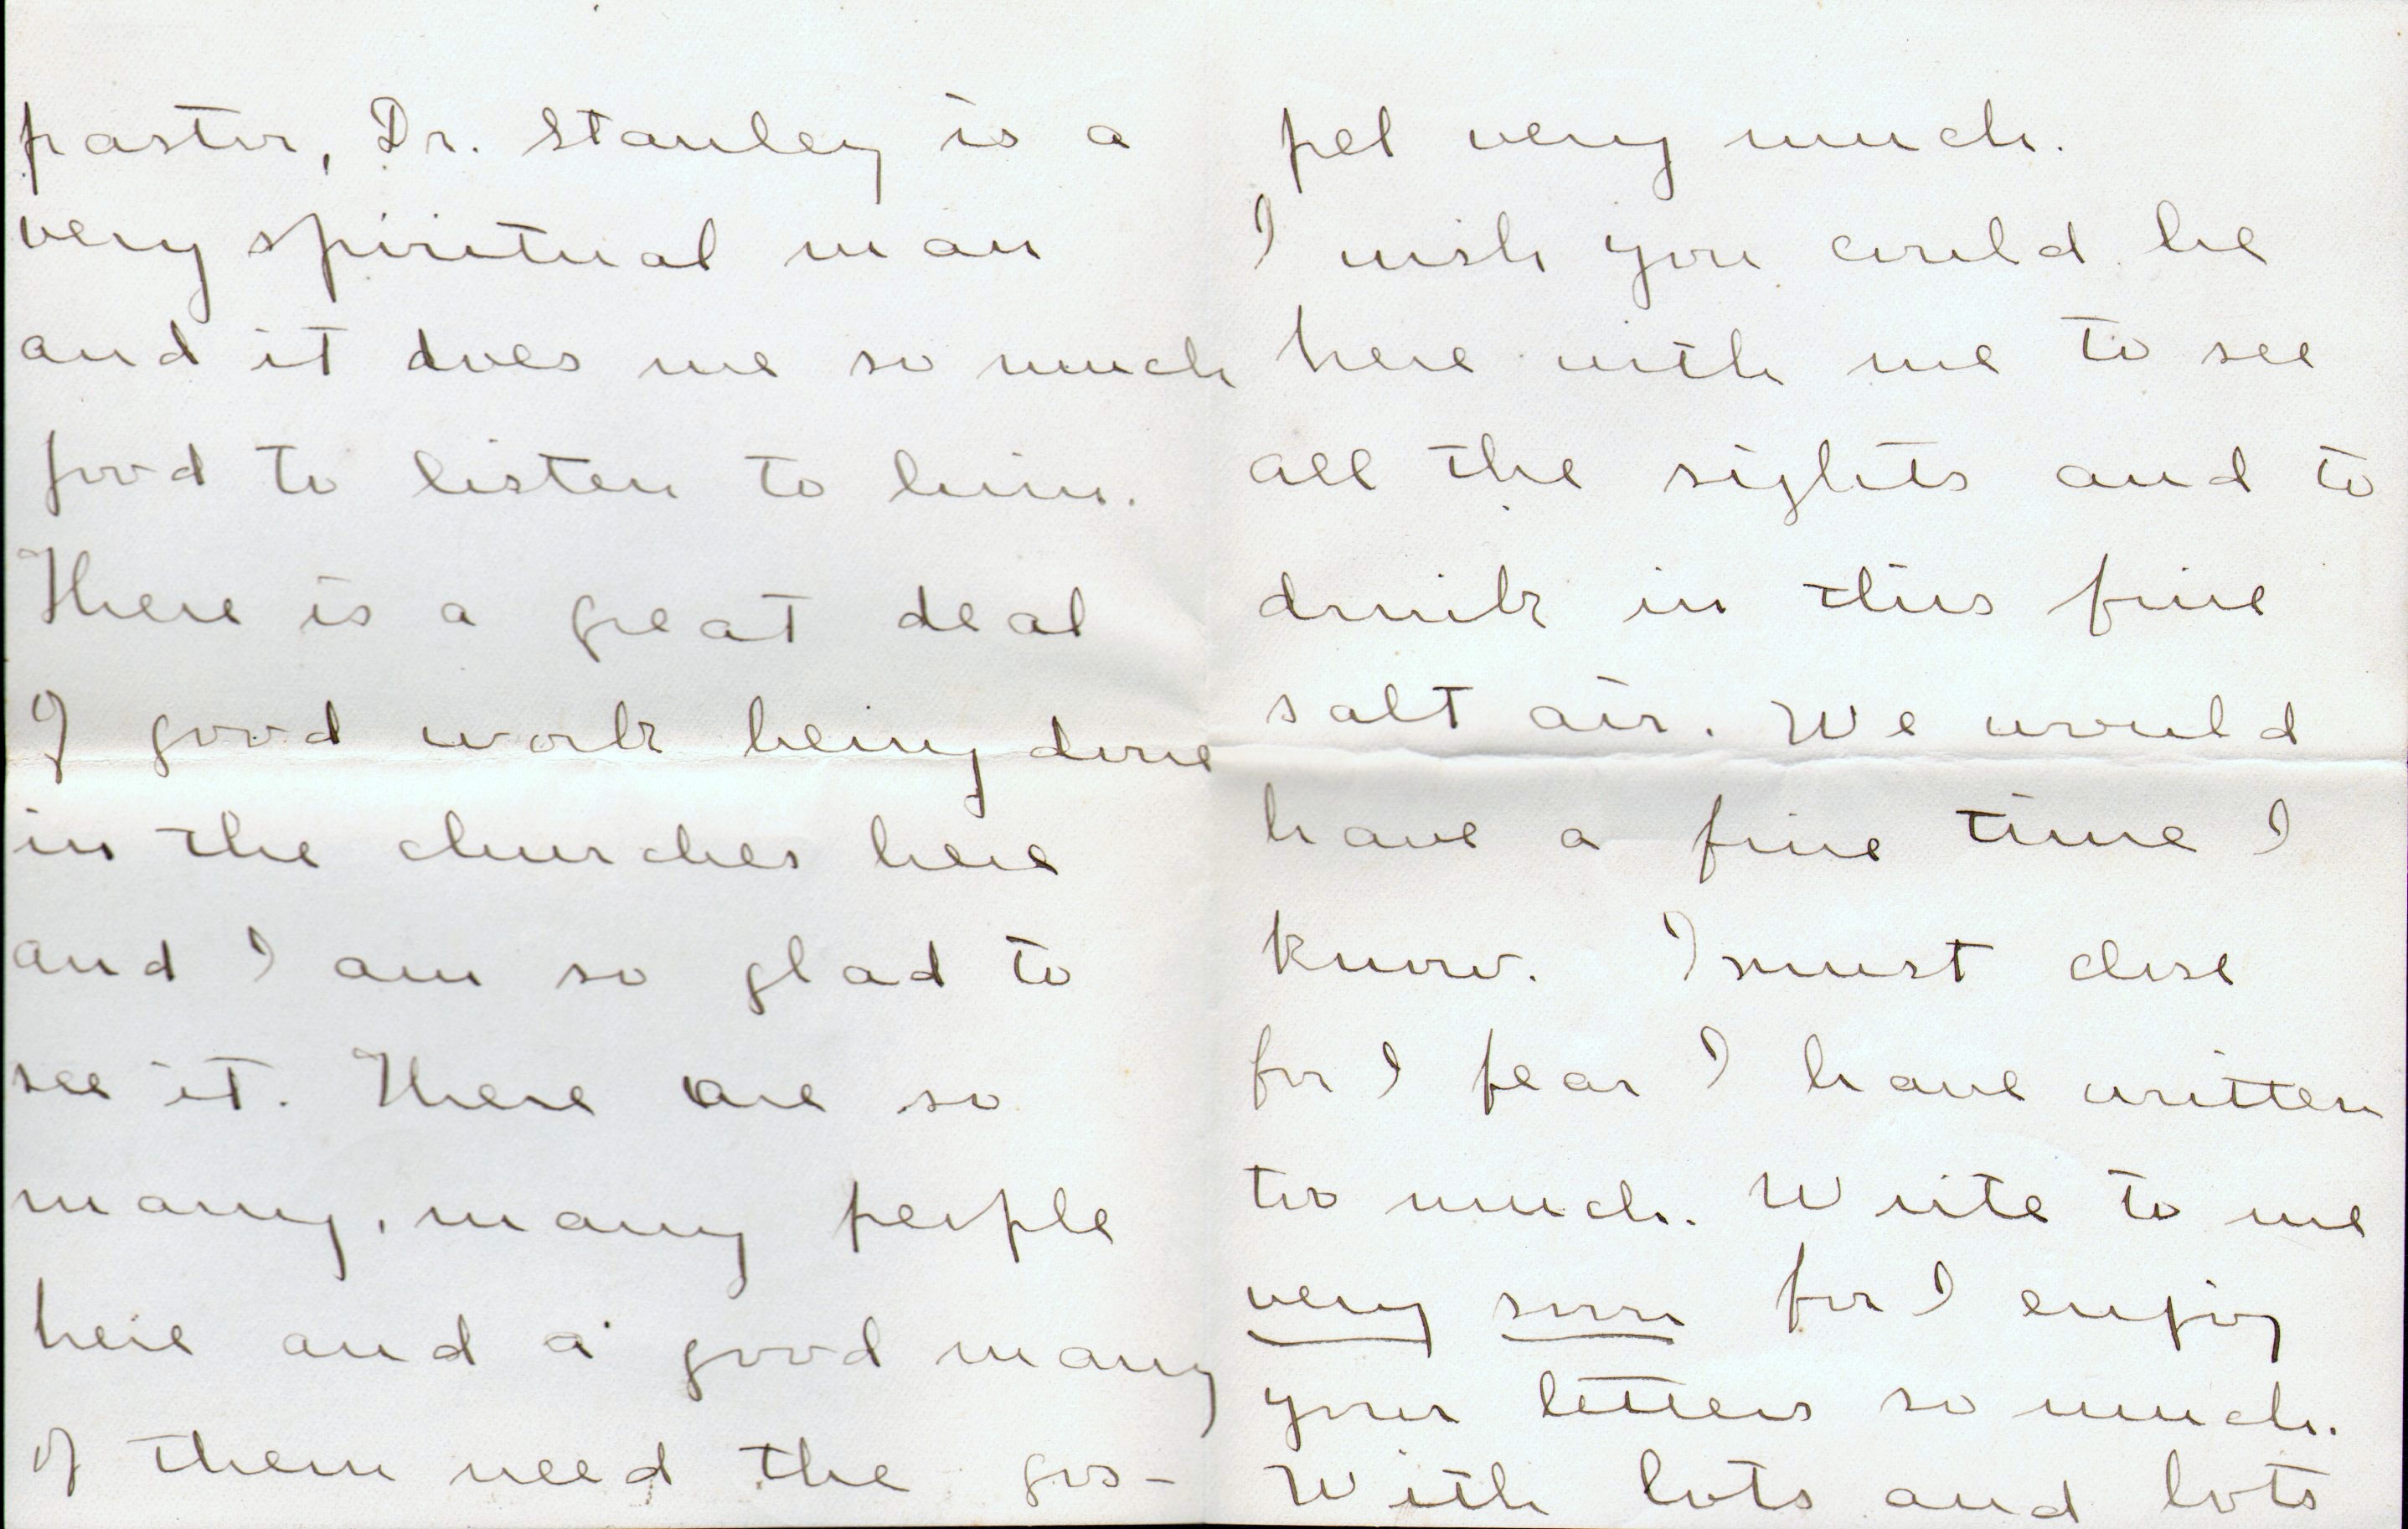 pastor, Dr. Stanley is a
very spiritual man
and it does me so much
good to listen to him.
There is a great deal
of good work being done
in the churches here
and I am so glad to
see it. There are so
many, many people
here and a good many
of them need the gos-
pel very much.
I wish you could be
here with me to see
all the sights and to
drink in this fine
salt air. We would
have a fine time I
know. I must close
for I fear I have written
too much. Write to me
very soon for I enjoy
your letters so much.
With lots and lots